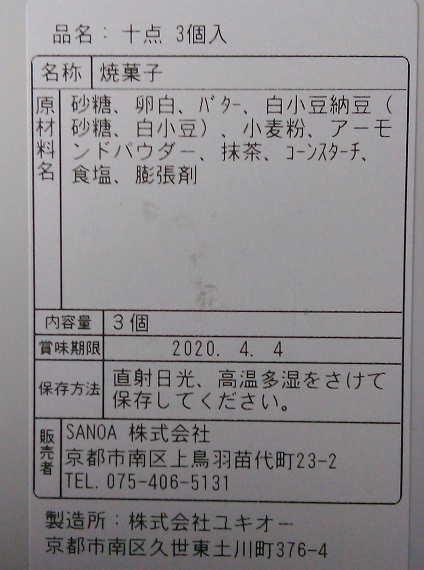 品名： 十点 3個入
名称 焼菓子
原材料名 砂糖、卵白、ﾊﾞﾀｰ、白小豆納豆（
砂糖、白小豆）、小麦粉、アーモ
ンドパウダー、抹茶、ｺｰﾝｽﾀｰﾁ、
食塩、膨張剤
内容量 ３個
賞味期限 2020. 4. 4
保存方法 直射日光、高温多湿をさけて
保存してください。
販売者 SANOA 株式会社
京都市南区上鳥羽苗代町23-2
TEL. 075-406-5131
製造所：株式会社ユキオー
京都市南区久世東土川町376-4